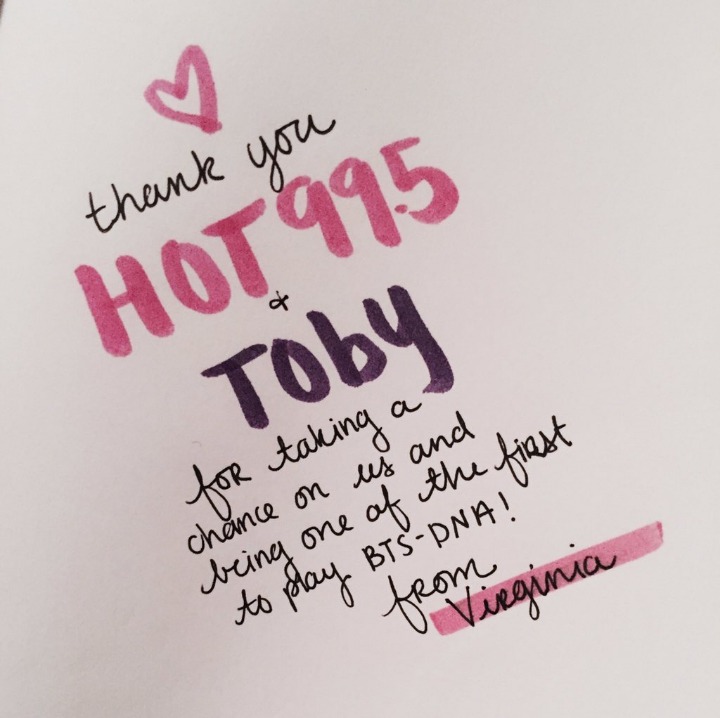 thank you
HOT 99.5
&
TOby
for taking a
chance on us and
being one of the first
to play BTS-DNA!
from
Virginia